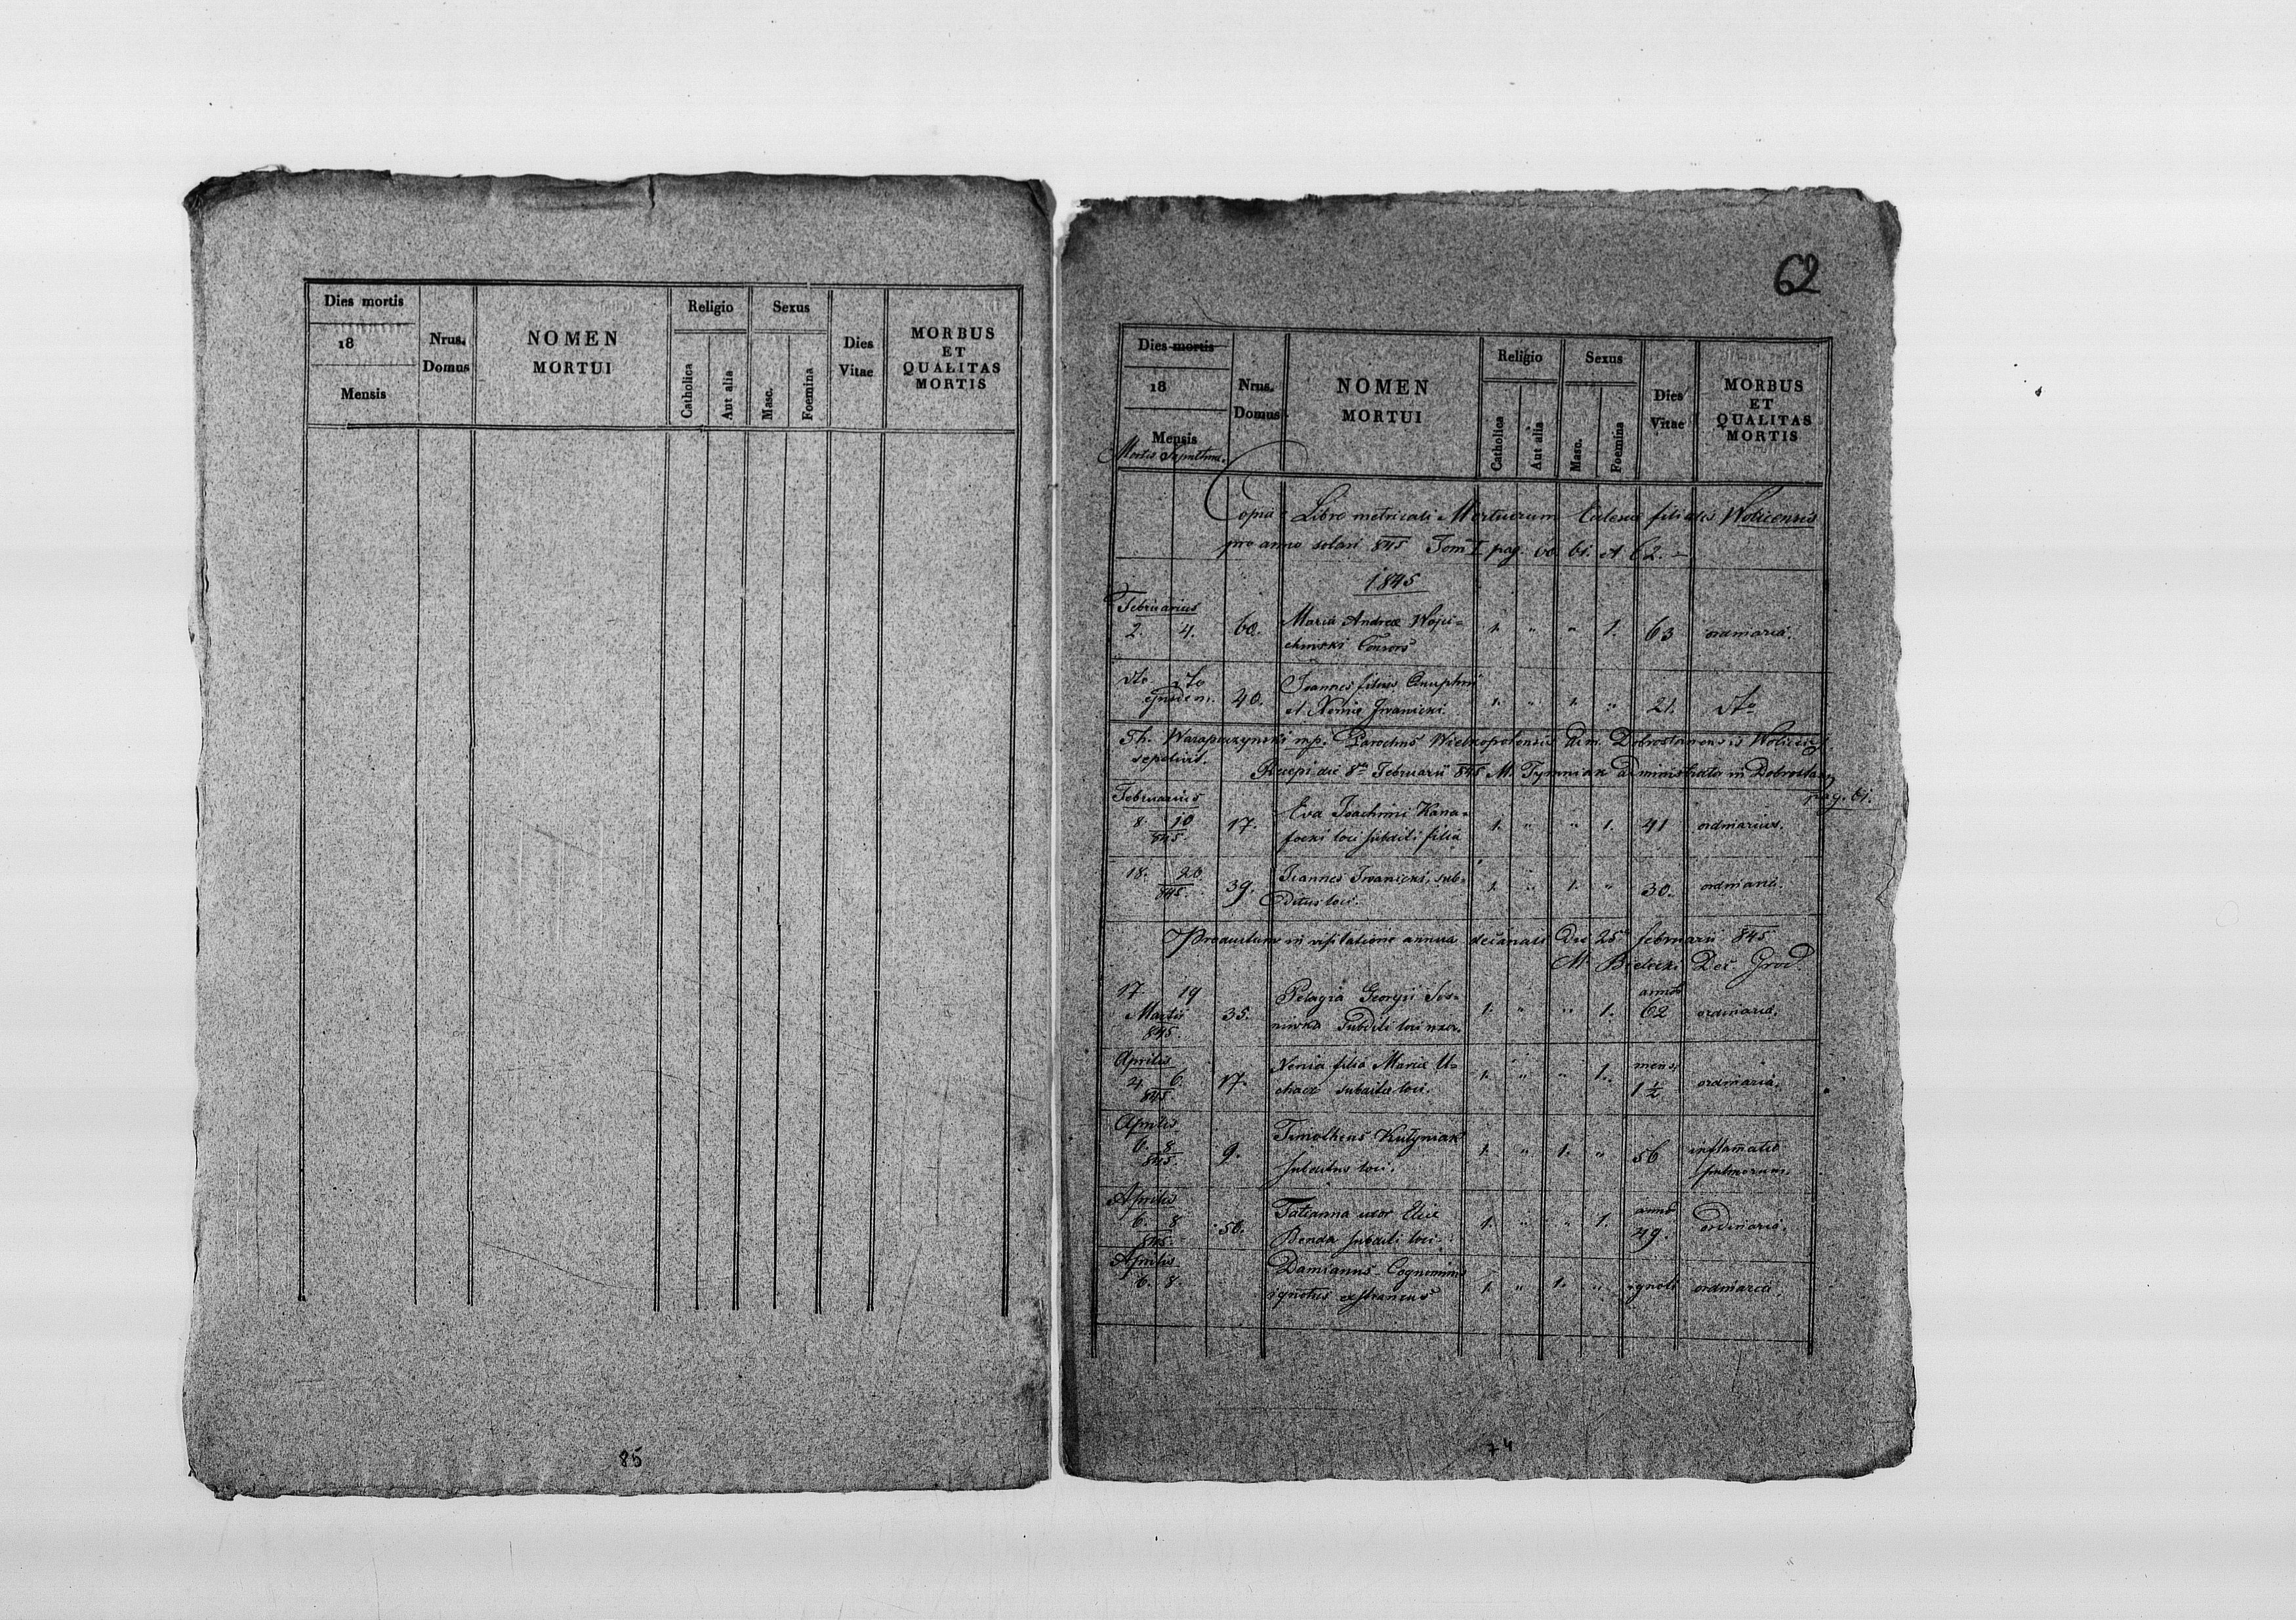 Dies mortis
18
Mensis
Nrus.
Domus
NOMEN
MORTUI
Religio
Catholica
Aut alia
Sexus
Masc.
Foemina
Dies
Vitae
MORBUS
ET
QUALITAS
MORTIS
85
62
Dies mortis
18
Mensis
Mortis Sepulturae.
Nrus.
Domus
NOMEN
MORTUI
Religio
Catholica
Aut alia
Sexus
Masc.
Foemina
Dies
Vitae
MORBUS
ET
QUALITAS
MORTIS
Copia Libro metricali Mortuorum Eclesiae filialis Wolicensis
pro anno solari 845 Tom I pag. 60. 61. et 62.
1845
Februarius
2. 4. 60. Maria Andreae Wojci= 1. " " 1. 63 ordinaria.
chowski Consors
dto dto Joannes filius Onuphrii
ejusdem. 40. et Xenia Iwanicki 1. " 1. " 21. dto
Th. Parochus Wielkopolensis Adm. Dobrostanensis Wolicens
sepelivit.
Recepi die 8va Februarii 845 M. Tymniak administrator in Dobrostany
pag. 61.
Februarius
8. 10 17. Eva Joachimi Kana= 1. " " 1. 41 ordinarius.
845. focki loci subditi filia
18. 20 39. Joannes Iwanicki, sub= 1. " 1. " 30. ordinaria.
845. ditus loci.
Productum in visitatione annua decanali Die 25 februarii 845
M. Bielecki Dec. Grod.
17 19 35. Pelagia Georgii Ses= 1. " " 1. annos ordinaria.
Martii niwka subditi loci uxor. 62
845.
Aprilis
4 6. 17. Xenia filia Mariae U= 1. " " 1. mens. ordinaria.
845 chacz subditae loci. 1 1/2
Aprilis
6. 8 9. Timotheus Kutyniak 1. " 1. " 56 inflamatio
845. subditus loci. pulmonum.
Aprilis
6. 8 56. Tatianna uxor Eliae 1. " " 1. annos ordinaria.
845 Benda subditi loci. 49.
Aprilis
6. 8. Damianus Cognominis 1. " 1. " ignoti ordinaria.
ignotus extraneus
74